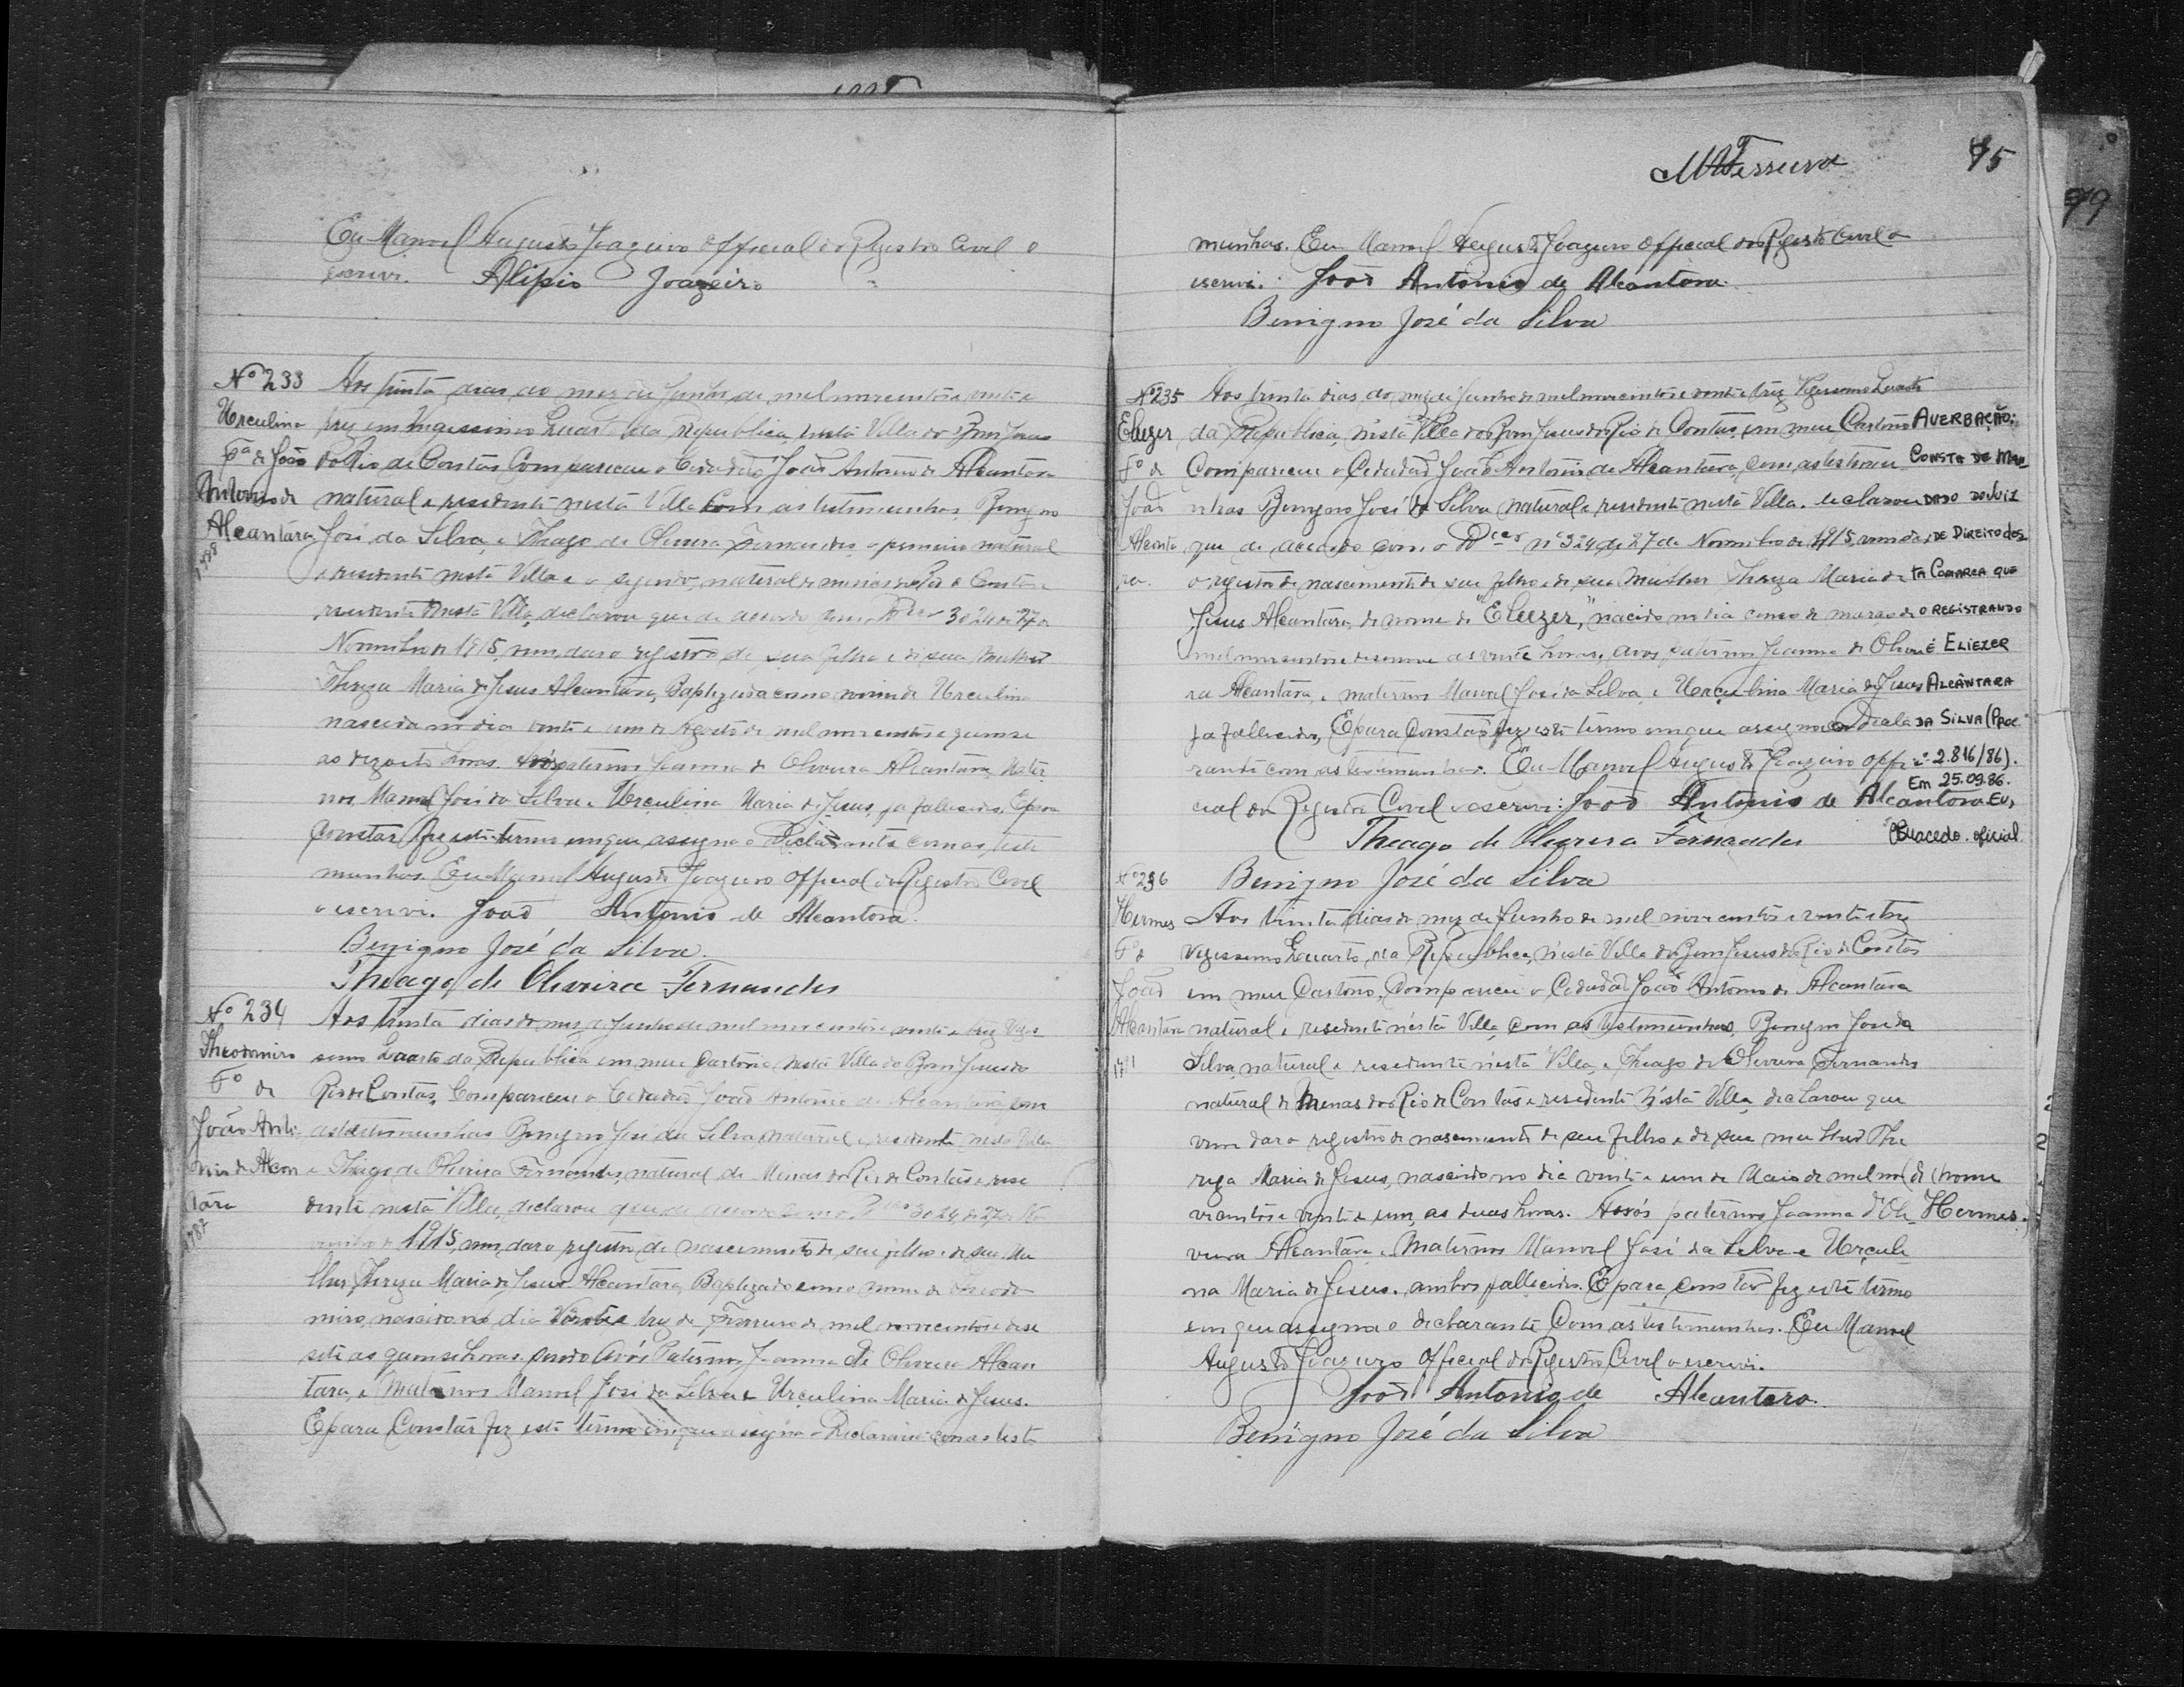 Eu Manoel Augusto Joazeiro Official do Registro Civil o
escrivi. Alipio Joazeiro
Nº 233
Urculina
Fª de João
Antonio de
Alcantára
Aos trinta dias do mez de Junho de mil novecentos e vinte e
trez em Vigessimo Quarto da Republica, nesta Villa do Bom Jesus
do Rio de Contas Compareceu o Cidadão João Antonio de Alcantára
natural e residente nesta Villa Com as testemunhas, Benigno
José da Silva, e Thiago de Oliveira Fernandes, o primeiro natural
e residente nesta Villa e o segundo, natural de Minas do Rio de Contas e
residente nesta Villa, declarou que de acordo com o 3024 de 27 de
Novembro de 1915, vem dar o registro de sua filha e de sua mulher
Thereza Maria de Jesus Alcantára, Baptizada com o nome de Urculina
nascida no dia vinte e um de Agosto de mil novecentos e quinse
as dezoito horas. Avós paternos Joanna de Oliveira Alcantára, Mater
nos Manoel José da Silva e Urculina Maria de Jesus, ja fallecidos. E para
Constar fiz este termo em que assigna o Declarante com as teste
munhas. Eu Manoel Augusto Joazeiro Official do Registro Civil
o escrivi. João Antonio de Alcantora.
Benigno José da Silva.
Theago de Oliveira Fernandes
Nº 234
Theodomiro
Fº de
João Anto
nio de Alcan
tára
Aos trinta dias do mez de Junho de mil novecentos e vinte e trez Viges
simo Quarto da Republica em meu Cartorio nesta Villa do Bom Jesus do
Rio de Contas, Compareceu o Cidadão João Antonio de Alcantára, com
as testemunhas Benigno José da Silva, natural e residente nesta Villa
e Thiago de Oliveira Fernandes, natural de Minas do Rio de Contas e resi
dente nesta Villa, declarou que de acordo com o 3024 de 27 de No
vembro de 1915, vem dar o registro de nascimento de seu filho e de sua Mu
lher Thereza Maria de Jesus Alcantára, Baptizado com o nome de Theodo
miro, nascido no dia Vinte e trez de Fevereiro de mil novecentos e dese
sete as quinse horas, sendo Avós Paternos Joanna de Oliveira Alcan
tara, e Maternos Manoel José da Silva e Urculina Maria de Jesus.
E para Constar fiz este termo em que assigna o Declarante com as teste
MAFerreira
75
79
munhas. Eu Manoel Augusto Joazeiro Official do Registro Civil o
escrivi. João Antonio de Alcantora.
Benigno José da Silva
Nº 235
Eliezer
Fº de
João
Alcanta
ra.
Aos trinta dias do mez de Junho de mil novecentos e vinte e trez Vigessimo Quarto
da Republica, nesta Villa do Bom Jesus do Rio de Contas, em meu Cartorio
Compareceu o Cidadão João Antonio de Alcantára, com as testemu
nhas Benigno José da Silva natural e residente nesta Villa. declarou
que de acordo com o nº 3024 de 27 de Novembro de 1915, vem dar
o registro de nascimento de seu filho e de sua Mulher Thereza Maria de
Jesus Alcantara, de nome de "Eliezer", nacido no dia cinco de março de
mil novecentos e desenove as vinte horas, avos paternos Joanna de Olivei
ra Alcantára, e maternos Manoel José da Silva, e Urculina Maria de Jesus
ja fallecidos, E para Constar fiz este termo em que assigna o Decla
rante com as testemunhas. Eu Manoel Augusto Joazeiro Offi
cial do Registro Civil o escrivi: João Antonio de Alcantora
Theago de Oliveira Fernandes
Benigno José da Silva
AVERBAÇÃO:
CONSTA DE MAN
DADO DO JUIZ
DE DIREITO DES
TA COMARCA QUE
O REGISTRANDO
É ELIEZER
ALCÂNTARA
DA SILVA (PROC.
nº 2.816/86).
Em 25.09.86.
EU,
Macedo. oficial.
Nº 236
Hermes
Fº de
João
Alcantára
Aos trinta dias do mez de Junho de mil novecentos e vinte e trez
Vigessimo Quarto, da Republica, nesta Villa do Bom Jesus do Rio de Contas
em meu Cartorio, Compareceu o Cidadão João Antonio de Alcantára
natural e residente nesta Villa, com as testemunhas, Benigno José da
Silva, natural e residente nesta Villa, e Thiago de Oliveira Fernandes
natural de Minas do Rio de Contas e residente nesta Villa, declarou que
vem dar o registro de nascimento de seu filho e de sua mulher The
reza Maria de Jesus, nascido no dia vinte e um de Maio de mil no (de nome
vecentos e vinte e um, as duas horas. Avós paternos Joanna d'Oli Hermes.
veira Alcantára e Maternos Manoel José da Silva e Urculi
na Maria de Jesus. ambos fallecidos. E para constar fiz este termo
em que assigna o declarante Com as testemunhas. Eu Manoel
Augusto Joazeiro Official do Registro Civil o escrivi.
João Antonio de Alcantara.
Benigno José da Silva